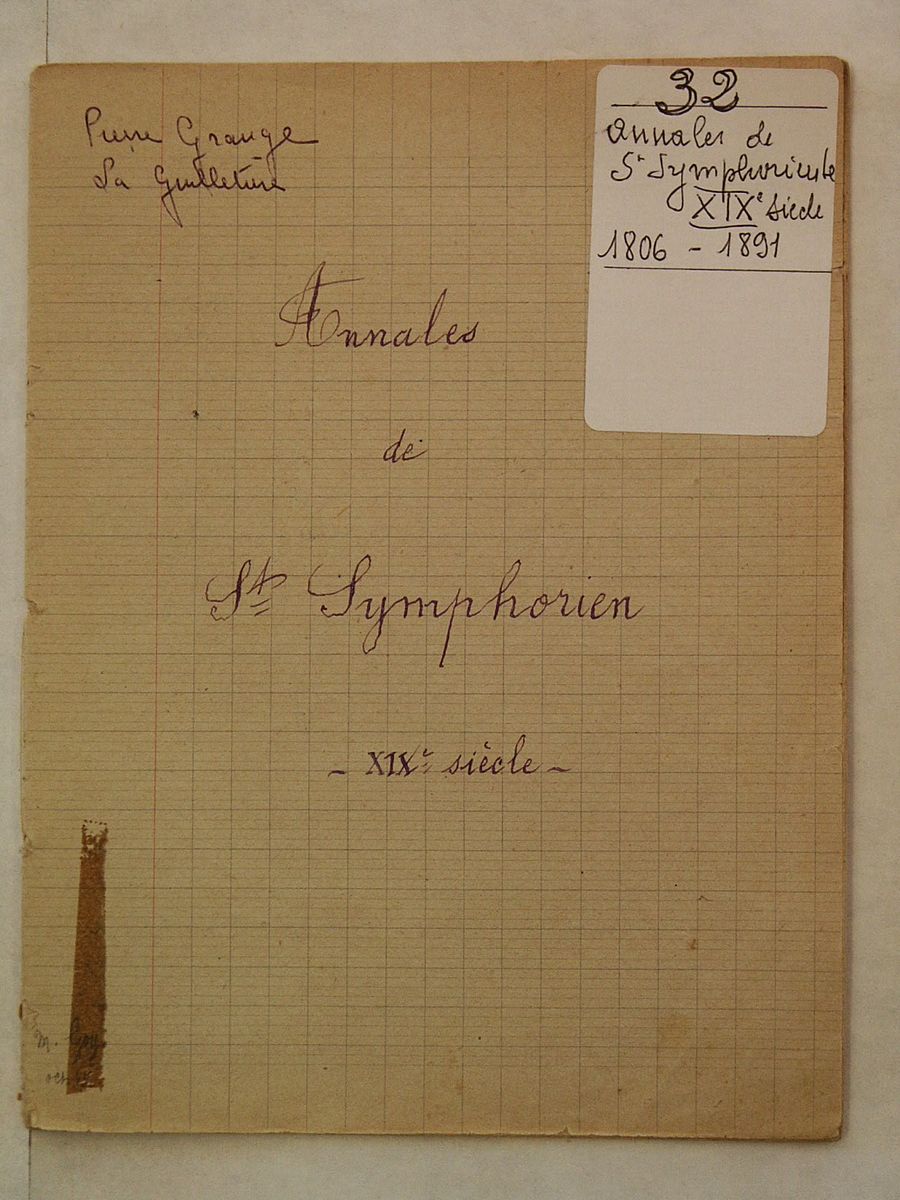 Pierre Grange
La Guilletière
32
Annales de
St Symphorien s/c
XIXe siècle
1806 - 1891
Annales
de
St Symphorien
- XIXe siècle -
m. Goy